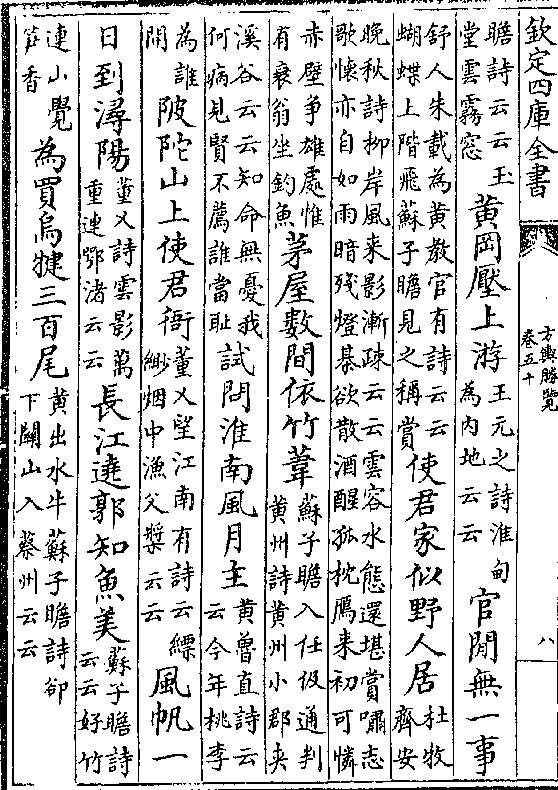 欽定四庫全書
方輿勝覽
卷五十
八
瞻詩云云玉
堂雲霧窓
黃岡壓上游
王元之詩淮甸
為内地云云
官閒無一事
舒人朱載為黃教官有詩云云
蝴蝶上階飛蘇子瞻見之稱賞
使君家似野人居
杜牧
齊安
晚秋詩柳岸風来影漸疎云云雲容水態還堪賞嘯志
歌懷亦自如雨暗殘燈棊欲散酒醒孤枕鴈来初可憐
赤壁争雄處惟
有衰翁坐釣魚
茅屋數間依竹葦
蘇子瞻入任伋通判
黃州詩黃州小郡夾
溪谷云云知命無憂我
何病見賢不薦誰當耻
試問淮南風月主
黃魯直詩云
云今年桃李
為誰
開
陂陀山上使君衙
董乂望江南有詩云縹
緲烟中漁父槳云云
風帆一
日到潯陽
董乂詩雲影萬
重連鄂渚云云
長江遶郭知魚美
蘇子瞻詩
云云好竹
連山覺
筍香
為買烏犍三百尾
黃出水牛蘇子瞻詩卻
下關山入蔡州云云